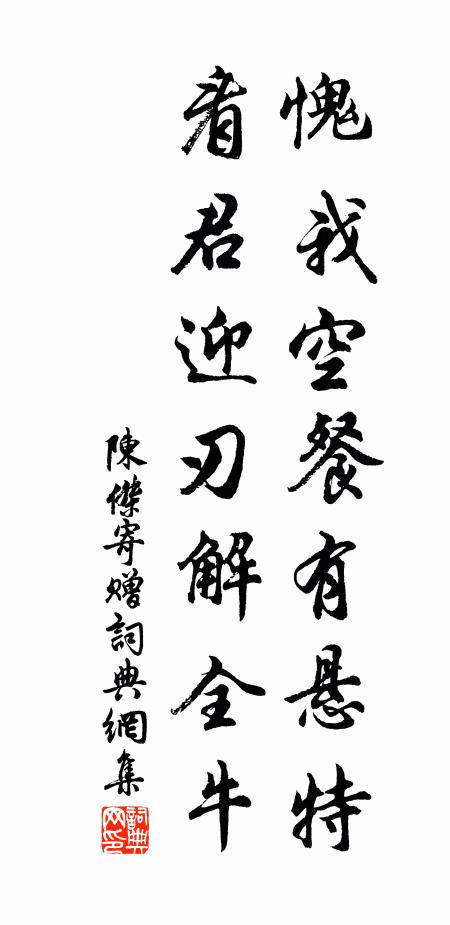 愧我空餐有悬特
看君迎刃解全牛
陳傑寄贈詞典網集
詞典网印